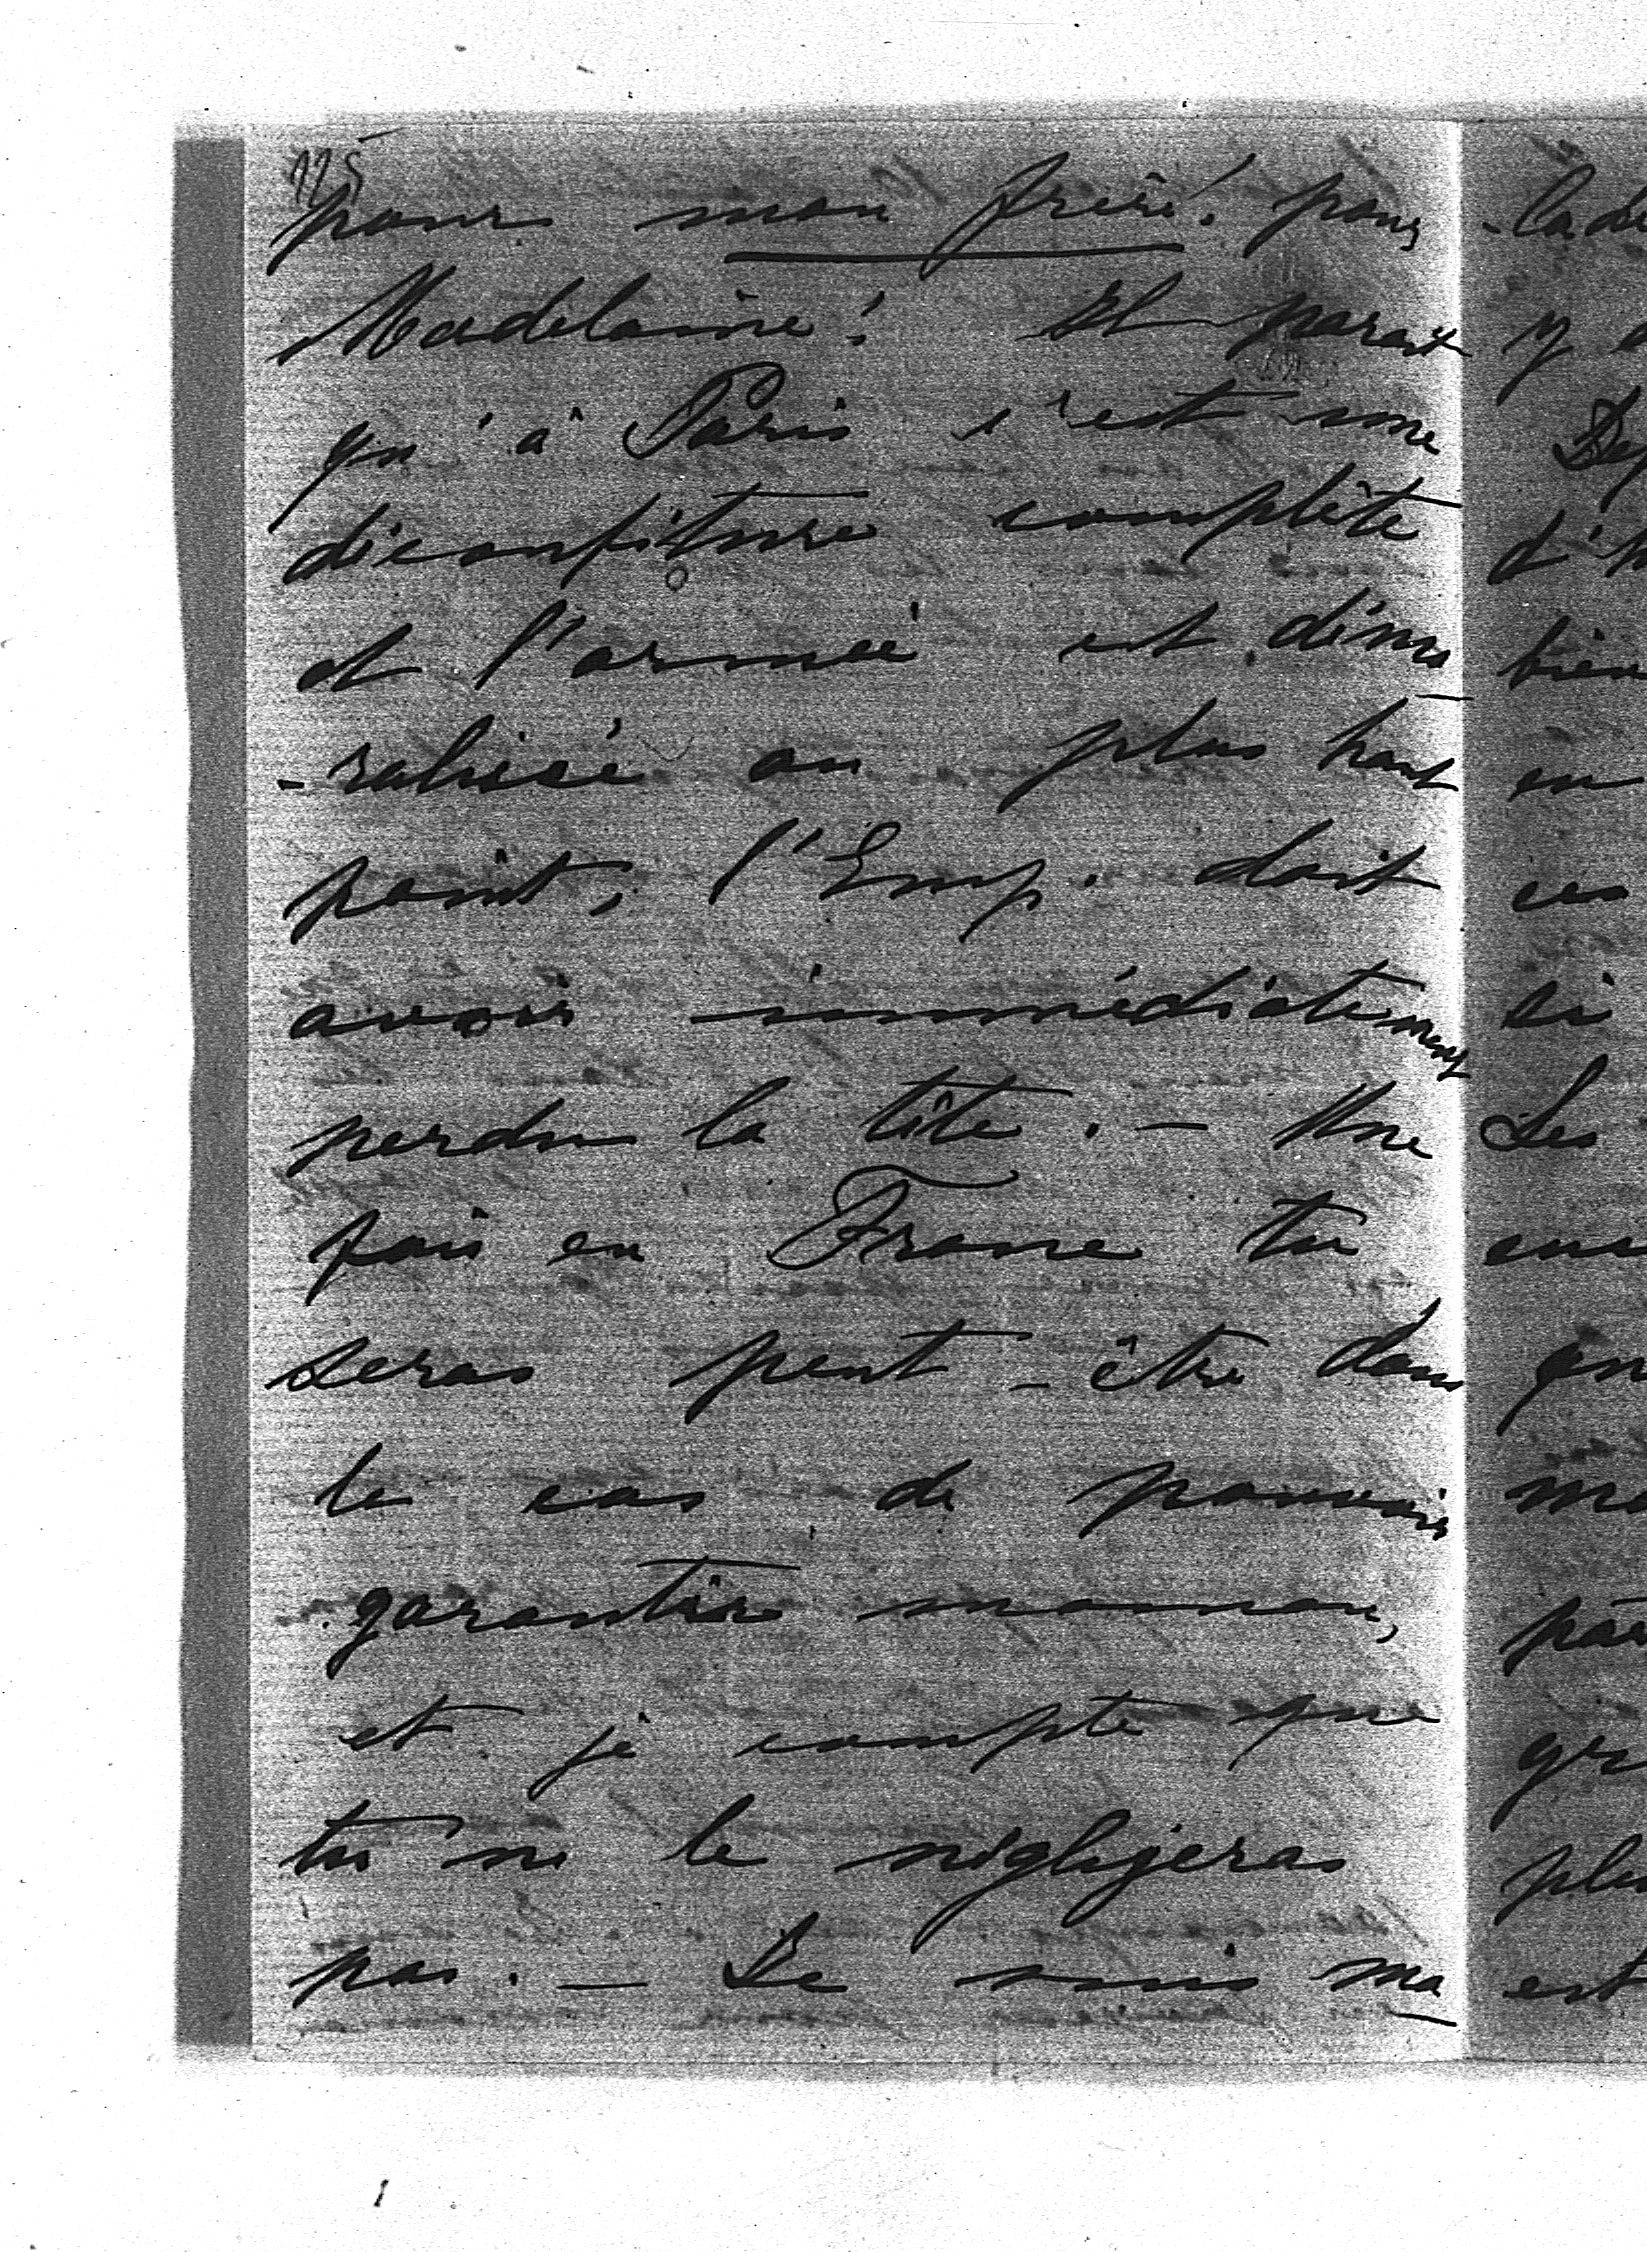 115
pour mon frère! pour
Madelaine! Il parait
qu'à Paris c'est une
déconfiture complète
et l'armée est démo
-ralisée au plus haut
point, l'Emp. doit
avoir immédiatement
perdu la tête. — Une
fois en France tu
seras peut-être dans
le cas de pouvoir
garantir maman,
et je compte que
tu ne le négligeras
pas. — Je suis ma
y
bien
en
ces
si
Les
est